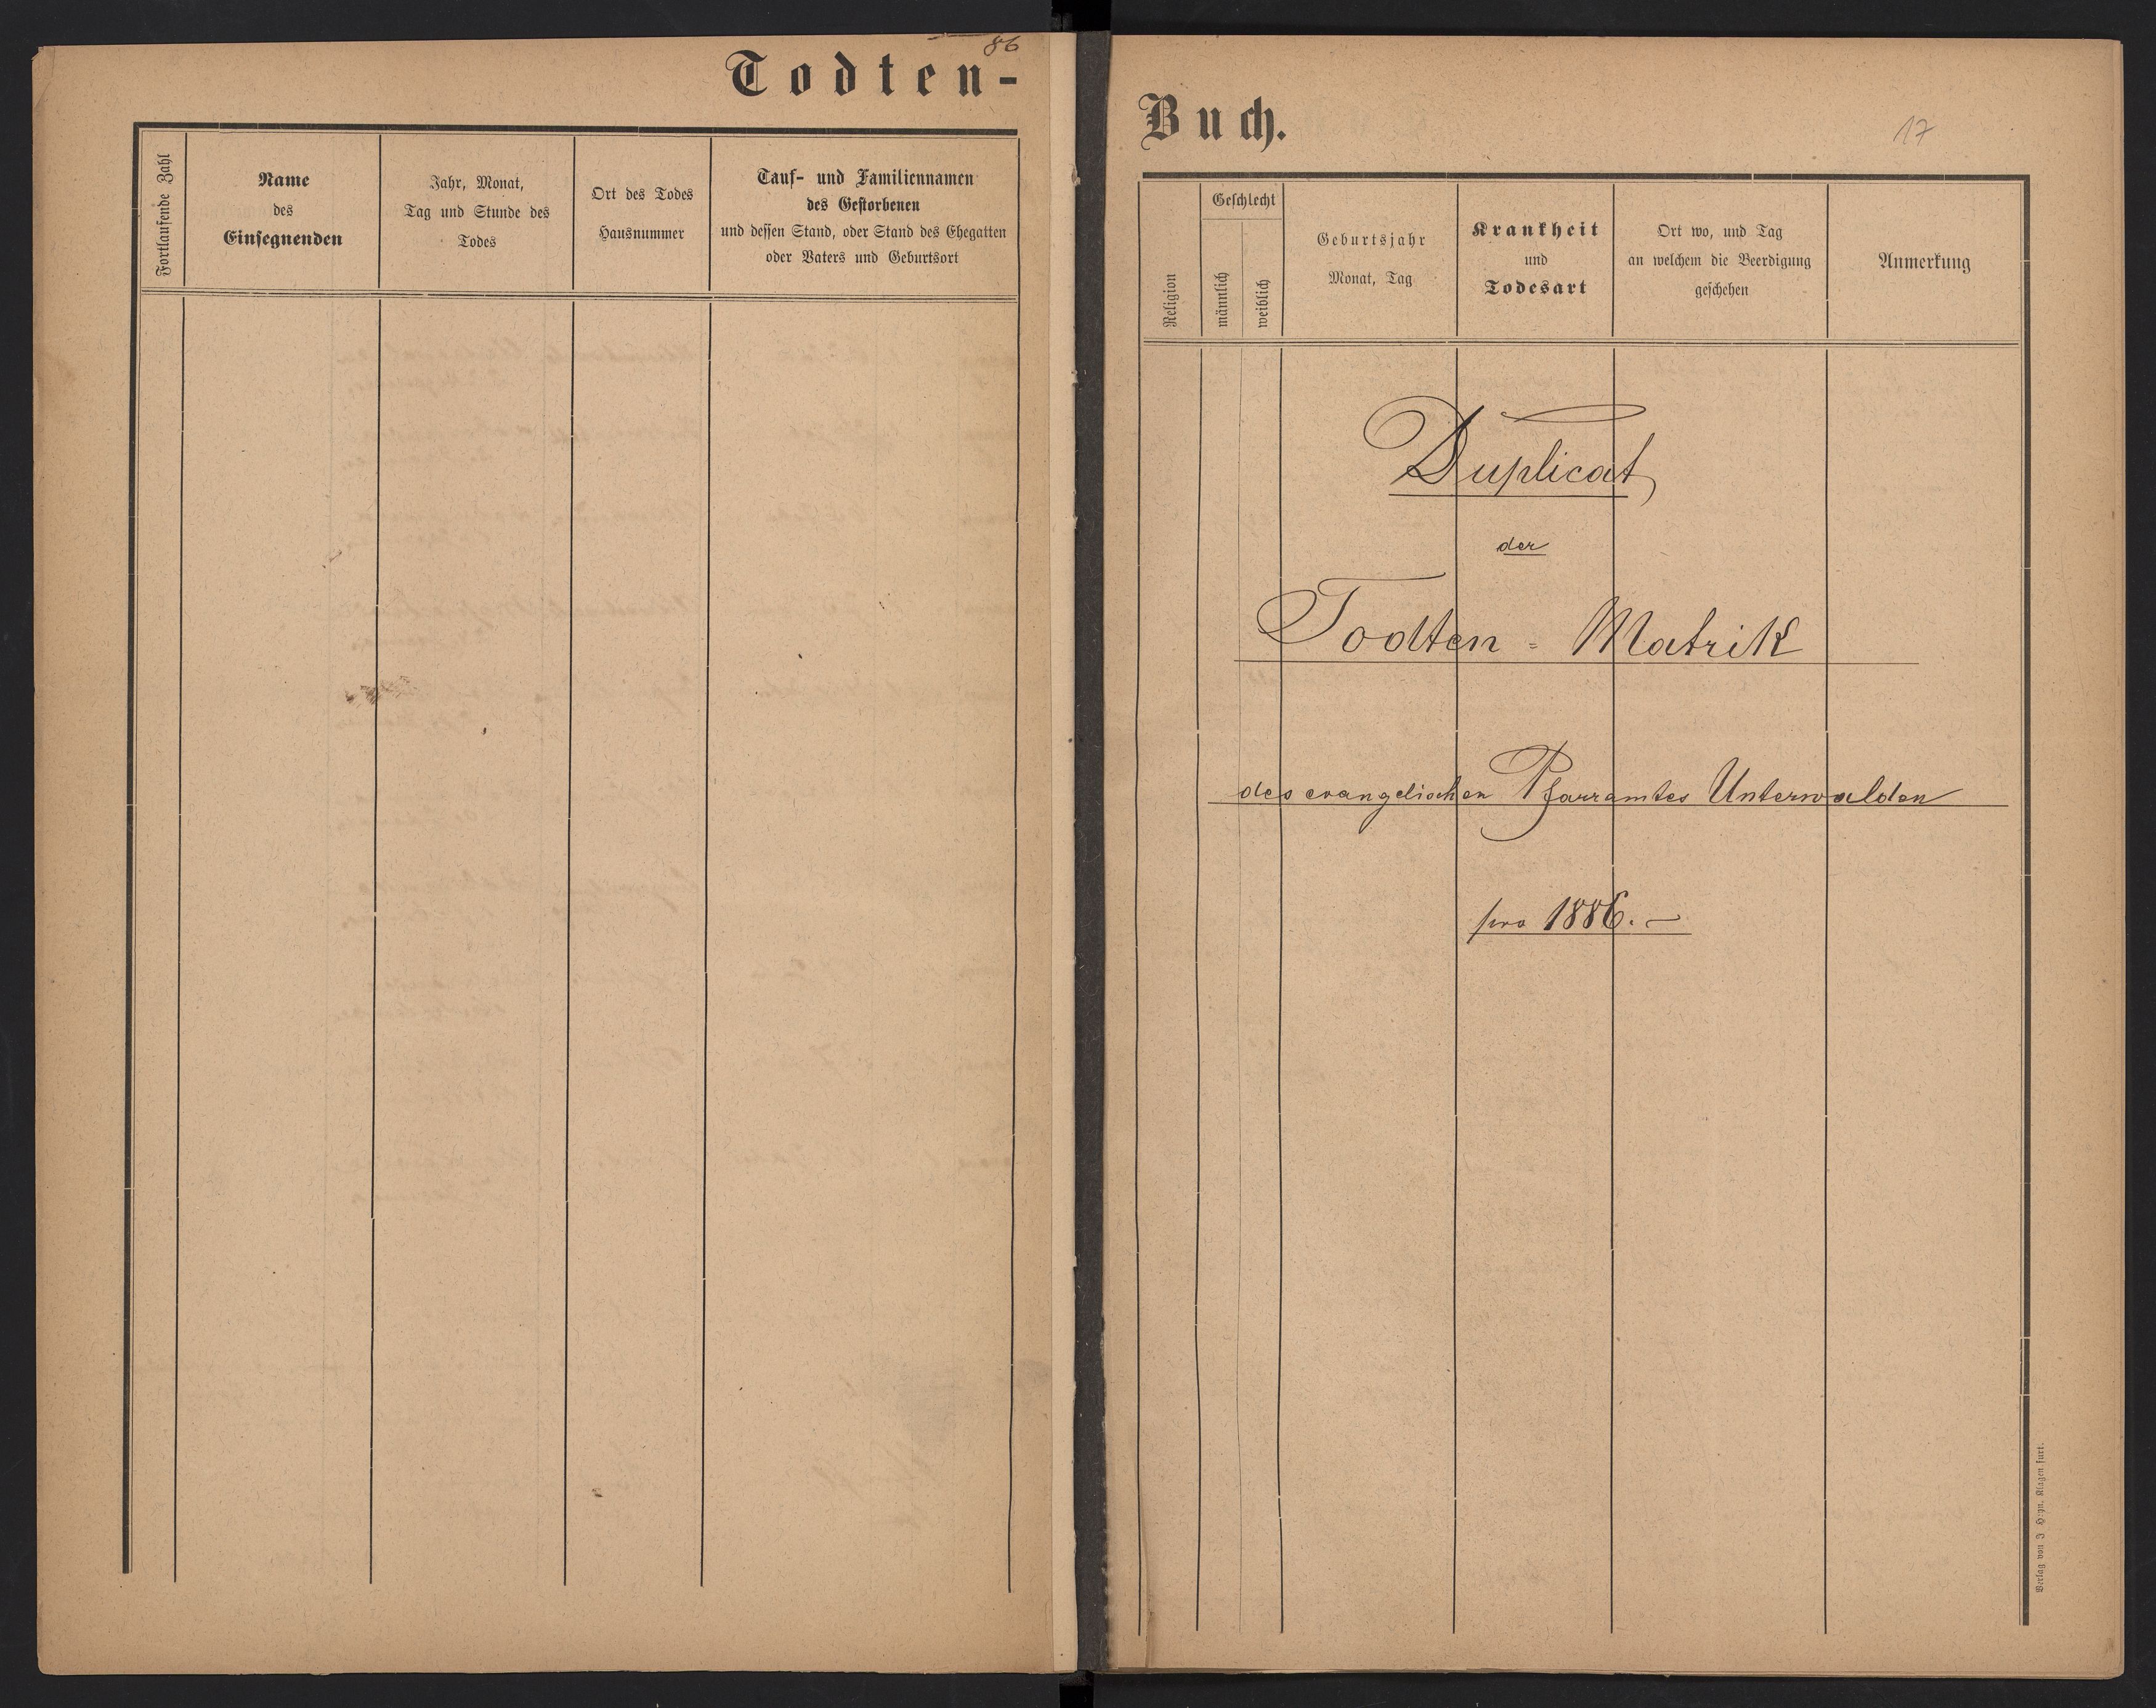 86
Todten-
Fortlaufende Zahl
Name
des
Einsegnenden
Jahr, Monat,
Tag und Stunde des
Todes
Ort des Todes
Hausnummer
Tauf- und Familiennamen
des Gestorbenen
und dessen Stand, oder Stand des Ehegatten
oder Vaters und Geburtsort
Buch.
17
Religion
Geschlecht
männlich
weiblich
Geburtsjahr
Monat, Tag
Krankheit
und
Todesart
Ort wo, und Tag
an welchem die Beerdigung
geschehen
Anmerkung
Duplicat
der
Todten = Matrik
des evangelischen Pfarramtes Unterwalden
pro 1886. —
Verlag von J. Heyn, Klagenfurt.